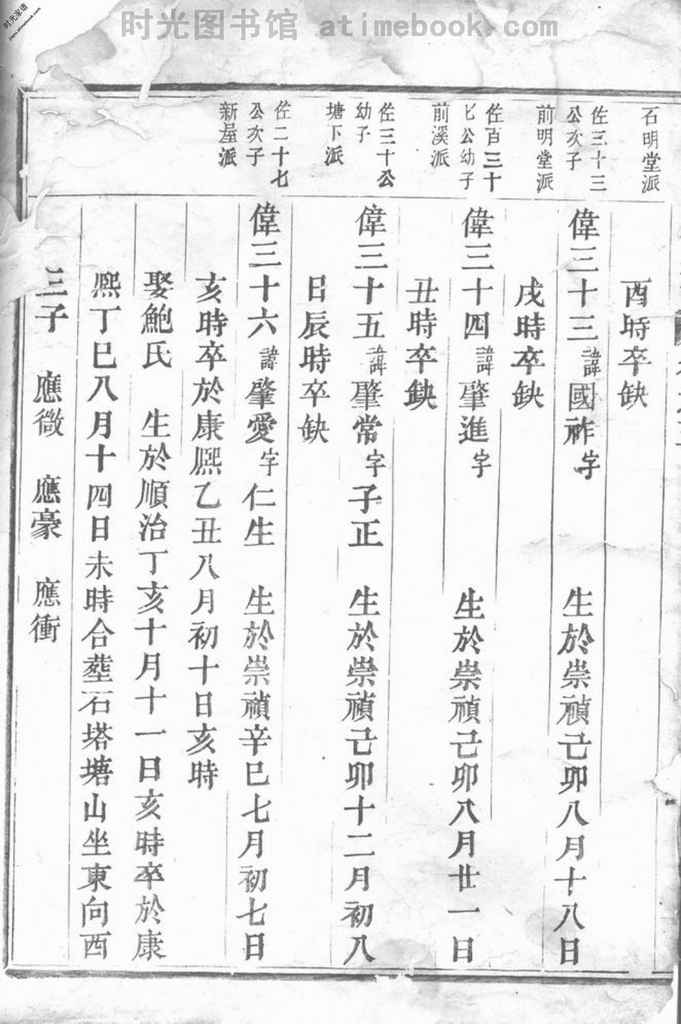 时光图书馆 atimebook.com
时光家谱
www.atimebook.com
石明堂派
酉時卒缺
佐三十三
公次子
前明堂派
偉三十三諱國祚字 生於崇禎己卯八月十八日
戌時卒缺
佐百三十
七公幼子
前溪派
偉三十四諱肇進字 生於崇禎己卯八月廿一日
丑時卒缺
佐三十公
幼子
塘下派
偉三十五諱肇常字子正 生於崇禎己卯十二月初八
日辰時卒缺
佐二十七
公次子
新屋派
偉三十六諱肇愛字仁生 生於崇禎辛巳七月初七日
亥時卒於康熈乙丑八月初十日亥時
娶鮑氏 生於順治丁亥十月十一日亥時卒於康
熈丁巳八月十四日未時合塟石塔塘山坐東向酉
三子 應徵 應豪 應衝
时光图书馆 atimebook.com